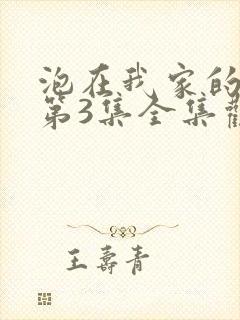 泡在我家的
第3集全集
王寿青